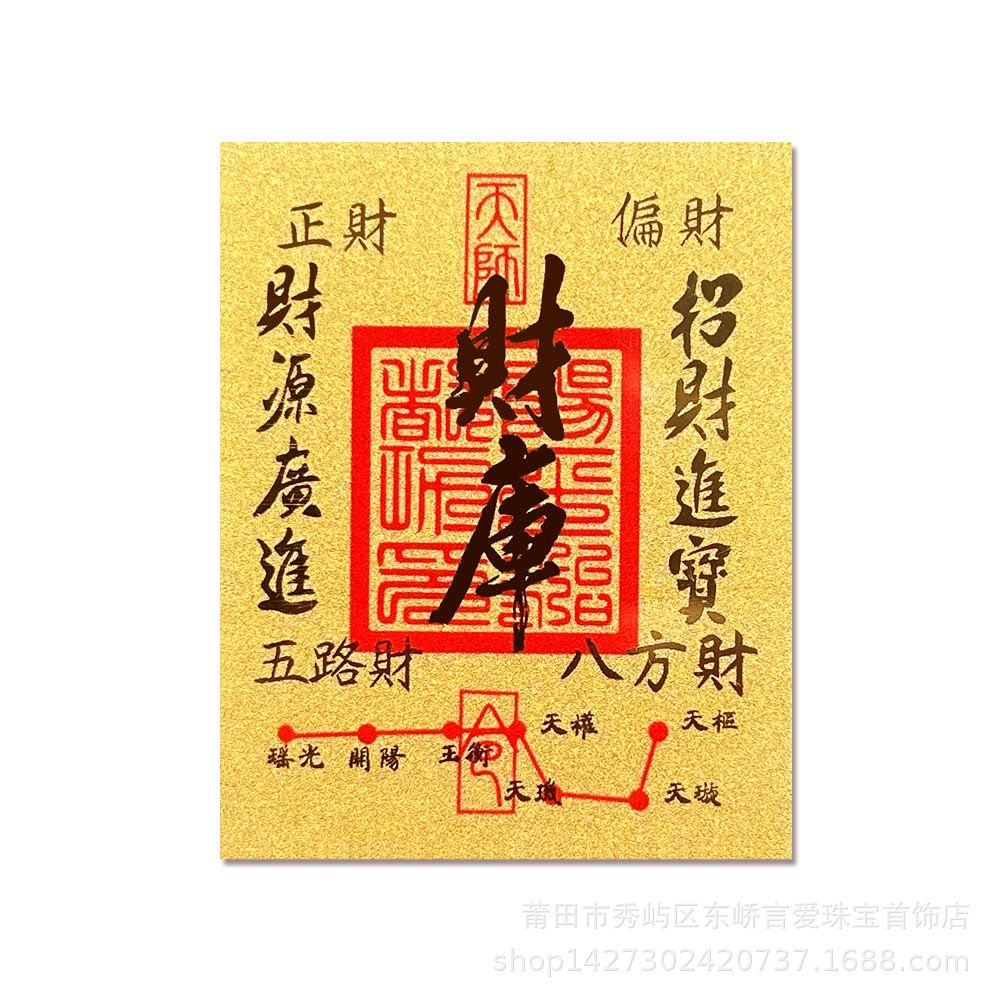 天師
正財
偏財
財庫
招財進寶
財源廣進
五路財
八方財
陽平治都功印
令
天權
天樞
瑤光
開陽
玉衡
天璣
天璇
莆田市秀屿区东峤言爱珠宝首饰店
shop1427302420737.1688.com